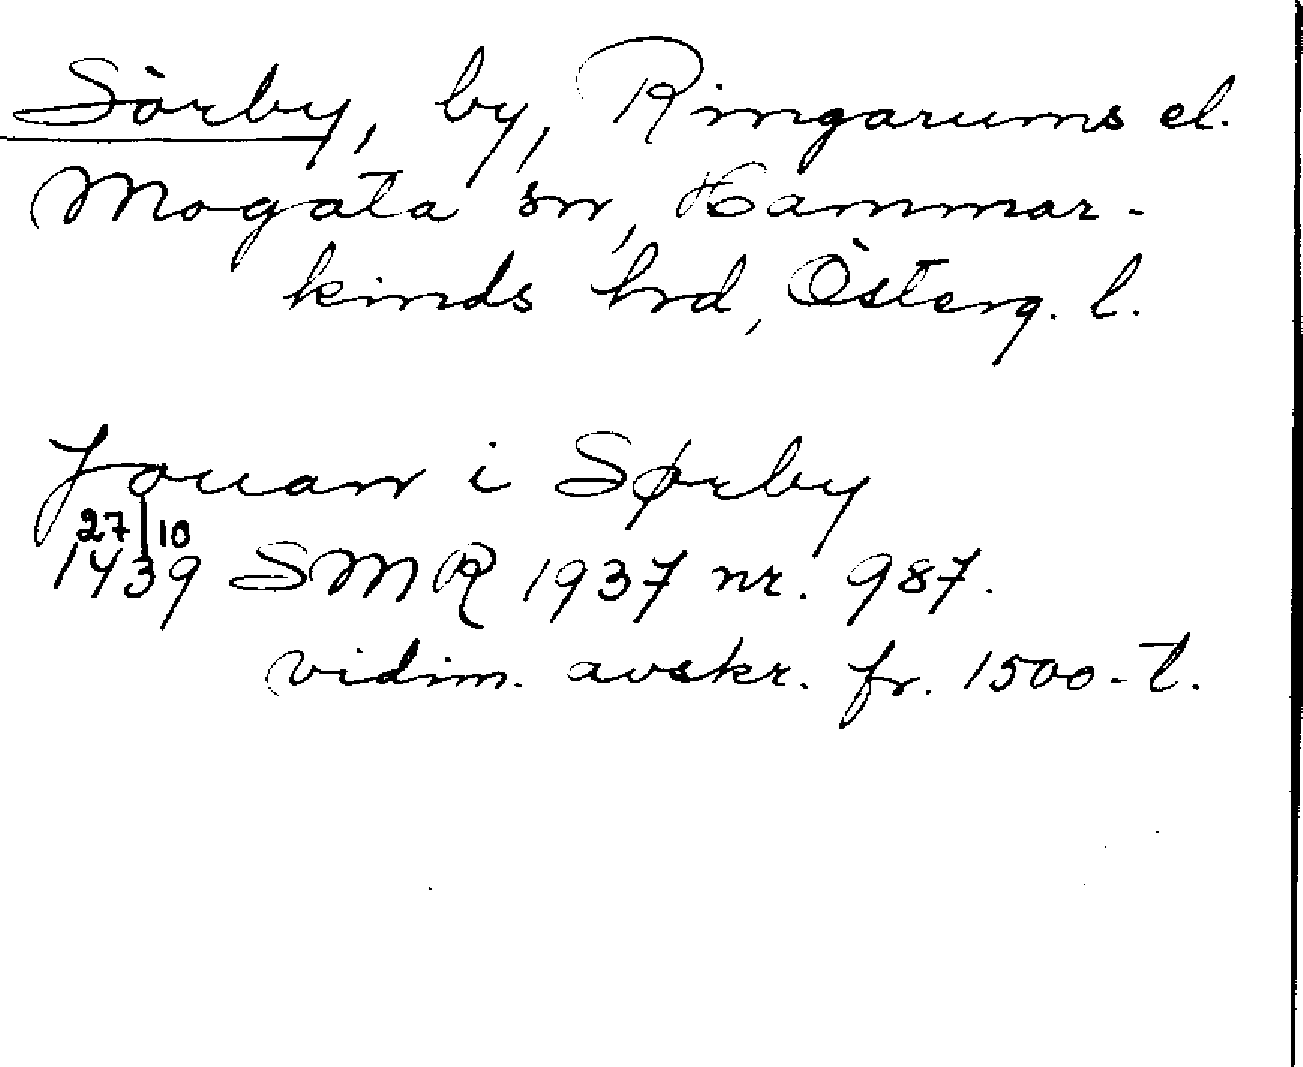 Sörby, by, Ringarums el.
Mogata sn, Hammar-
kinds hrd, Österg. l.
Jouan i Sørby
27/10
1439 SMR 1937 nr. 987.
vidim. avskr. fr. 1500-t.